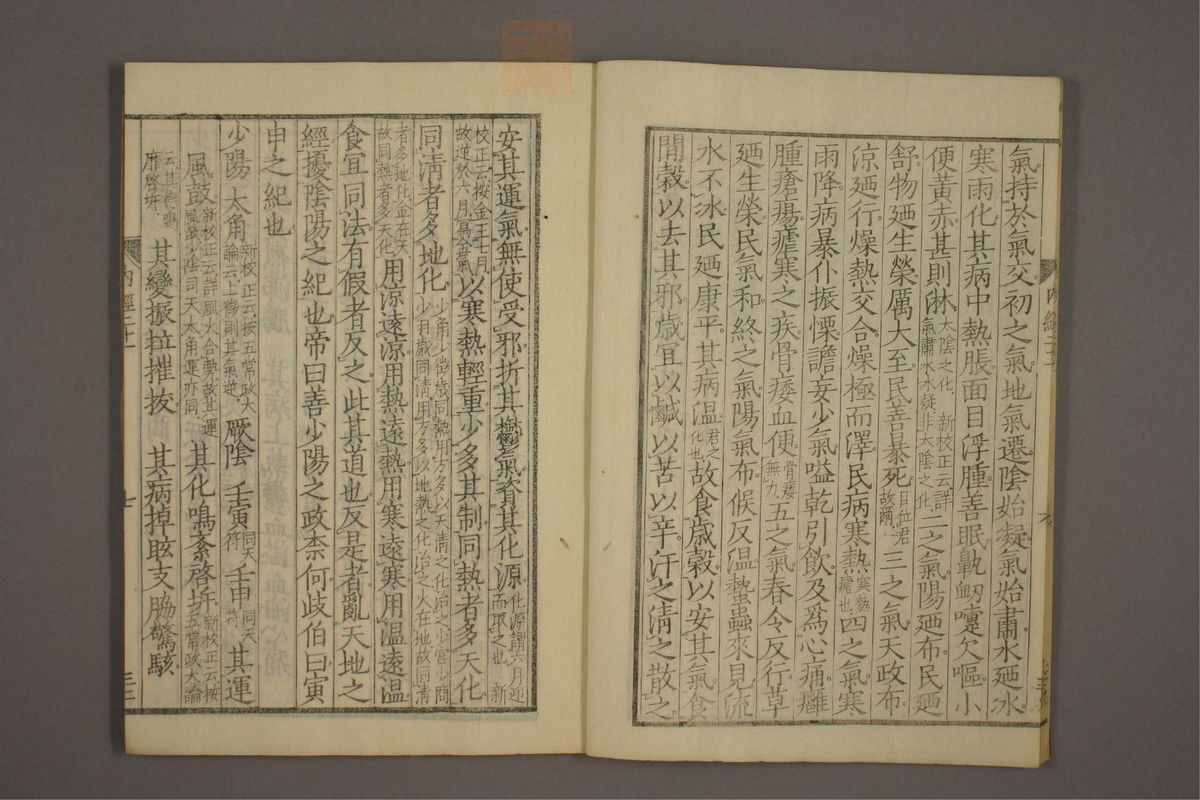 氣持於氣交初之氣地氣遷陰始凝氣始肅水廼冰
寒雨化其病中熱脹面目浮腫善眠鼽衄嚏欠嘔小
便黃赤甚則淋太陰之化 新校正云詳氣肅水水凝非太陰之化二之氣陽廼布民廼
舒物廼生榮厲大至民善暴死臣位君故爾三之氣天政布
涼廼行燥熱交合燥極而澤民病寒熱寒熱瘧也四之氣寒
雨降病暴仆振慄譫妄少氣嗌乾引飮及爲心痛癰
腫瘡瘍瘧寒之疾骨痿血便骨痿無力五之氣春令反行草
廼生榮民氣和終之氣陽氣布候反溫蟄蟲來見流
水不冰民廼康平其病溫君之化也故食歲穀以安其氣食
間穀以去其邪歲宜以鹹以苦以辛汗之淸之散之
安其運氣無使受邪折其鬱氣資其化源化源謂六月迎而取之也 新
校正云按金王七月故逆於六月寫金氣以寒熱輕重少多其制同熱者多天化
同淸者多地化少角少徵歲同熱用方多以天淸之化治之少宮少商少羽歲同淸用方多以地熱之化治之火在地故同淸
者多地化金在天故同熱者多天化用涼遠涼用熱遠熱用寒遠寒用溫遠溫
食宜同法有假者反之此其道也反是者亂天地之
經擾陰陽之紀也帝曰善少陽之政柰何歧伯曰寅
申之紀也
少陽 太角新校正云按五常政大論云上徵則其氣逆 厥陰 壬寅同天符 壬申同天符 其運
風鼓新校正云詳風火合勢故其運風鼓少陰司天太角運亦同 其化鳴紊啓坼新校正云按五常政大論
云其德鳴靡啓坼 其變振拉摧拔 其病掉眩支脇驚駭
內經二十一